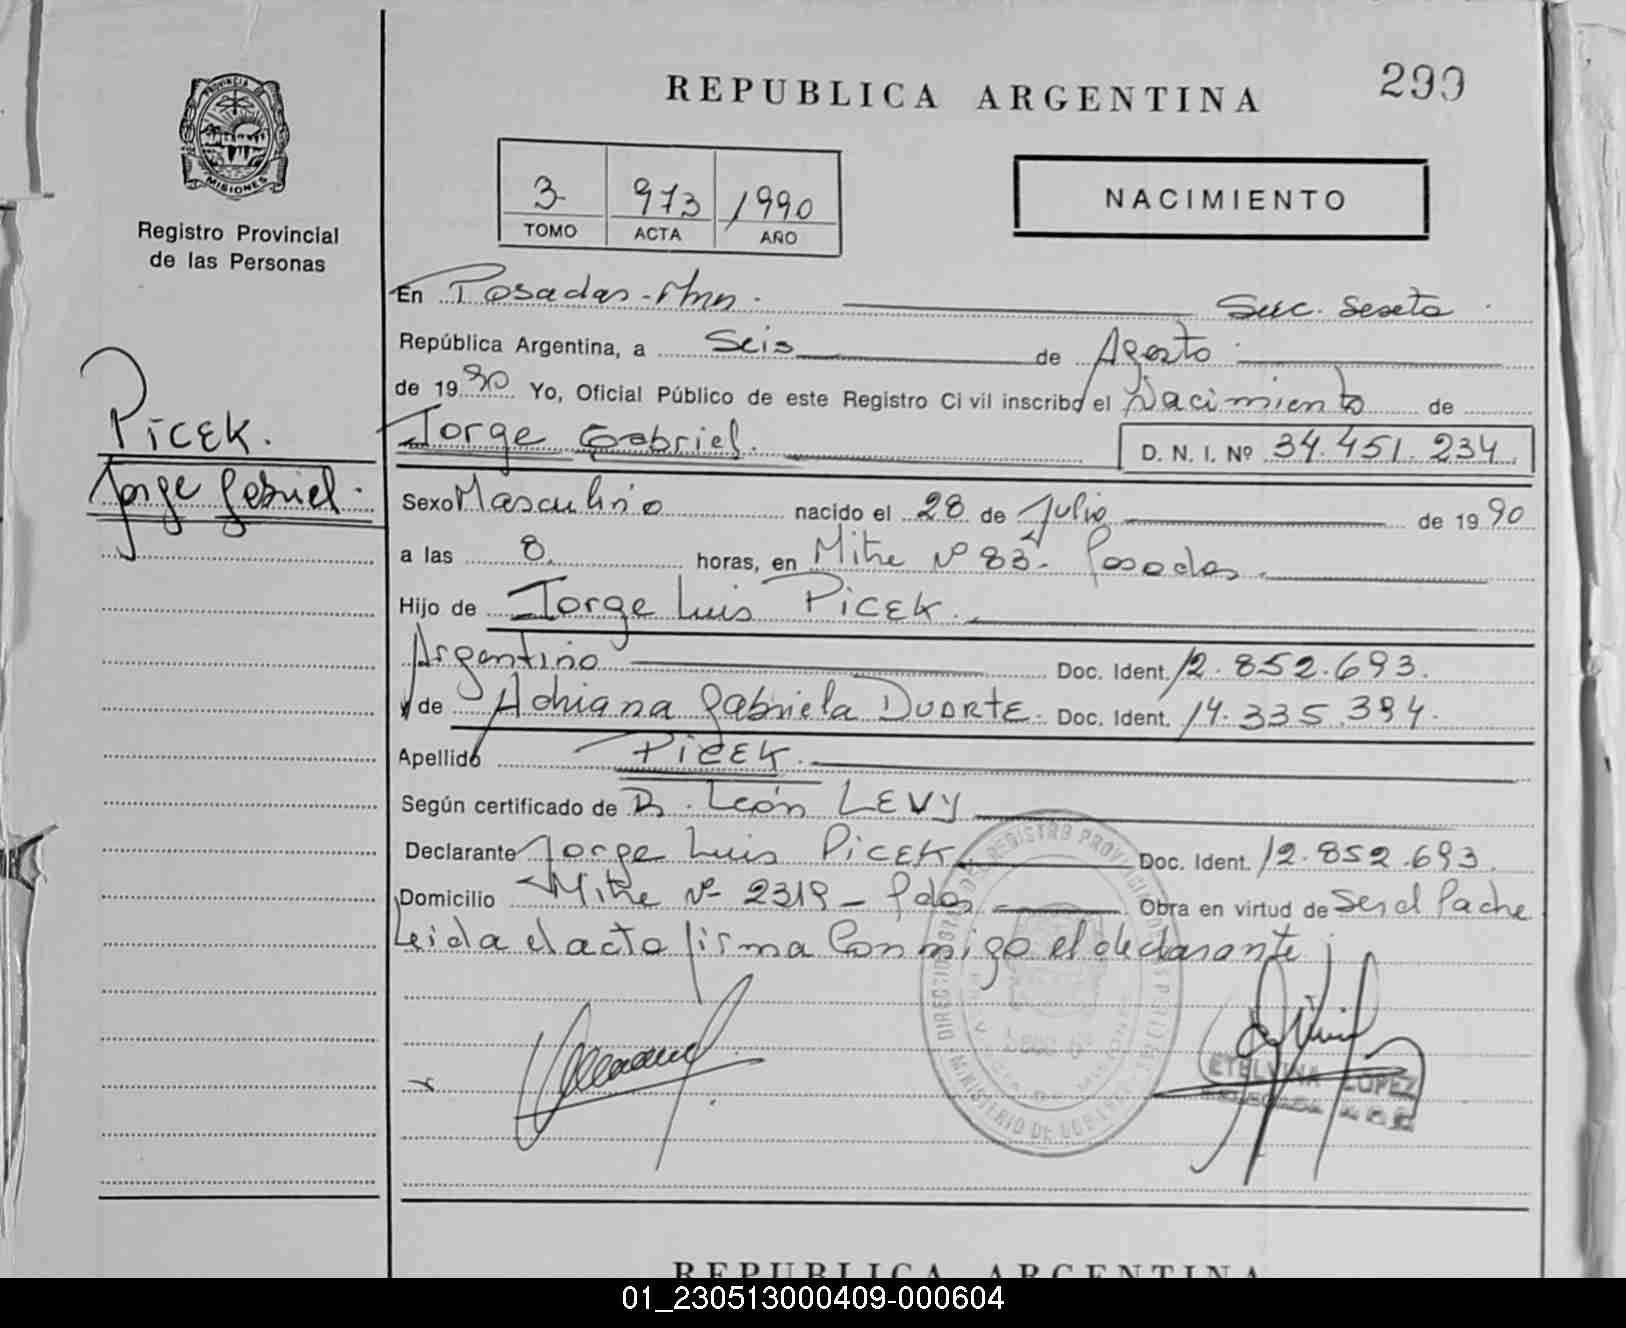 299
REPUBLICA ARGENTINA
PROVINCIA DE
MISIONES
Registro Provincial
de las Personas
3 973 1990
TOMO ACTA AÑO
NACIMIENTO
En Posadas - Mnes. Suc. Sexta
República Argentina, a Seis de Agosto
de 1990 Yo, Oficial Público de este Registro Civil inscribo el Nacimiento de
PICEK.
Jorge Gabriel.
Jorge Gabriel. D. N. I. Nº 34.451.234
Sexo Masculino nacido el 28 de Julio de 1990
a las 8. horas, en Mitre Nº 83- Posadas.
Hijo de Jorge Luis PICEK.
Argentino Doc. Ident. 12.852.693.
y de Adriana Gabriela DUARTE. Doc. Ident. 14.335.394.
Apellido PICEK.
Según certificado de Dr. León LEVY
Declarante Jorge Luis PICEK Doc. Ident. 12.852.693.
Domicilio Mitre Nº 2319 - Pdas Obra en virtud de Ser el Padre
Leida el acta firma Conmigo el declarante
ETELVINA LOPEZ
REPUBLICA ARGENTINA
01_230513000409-000604